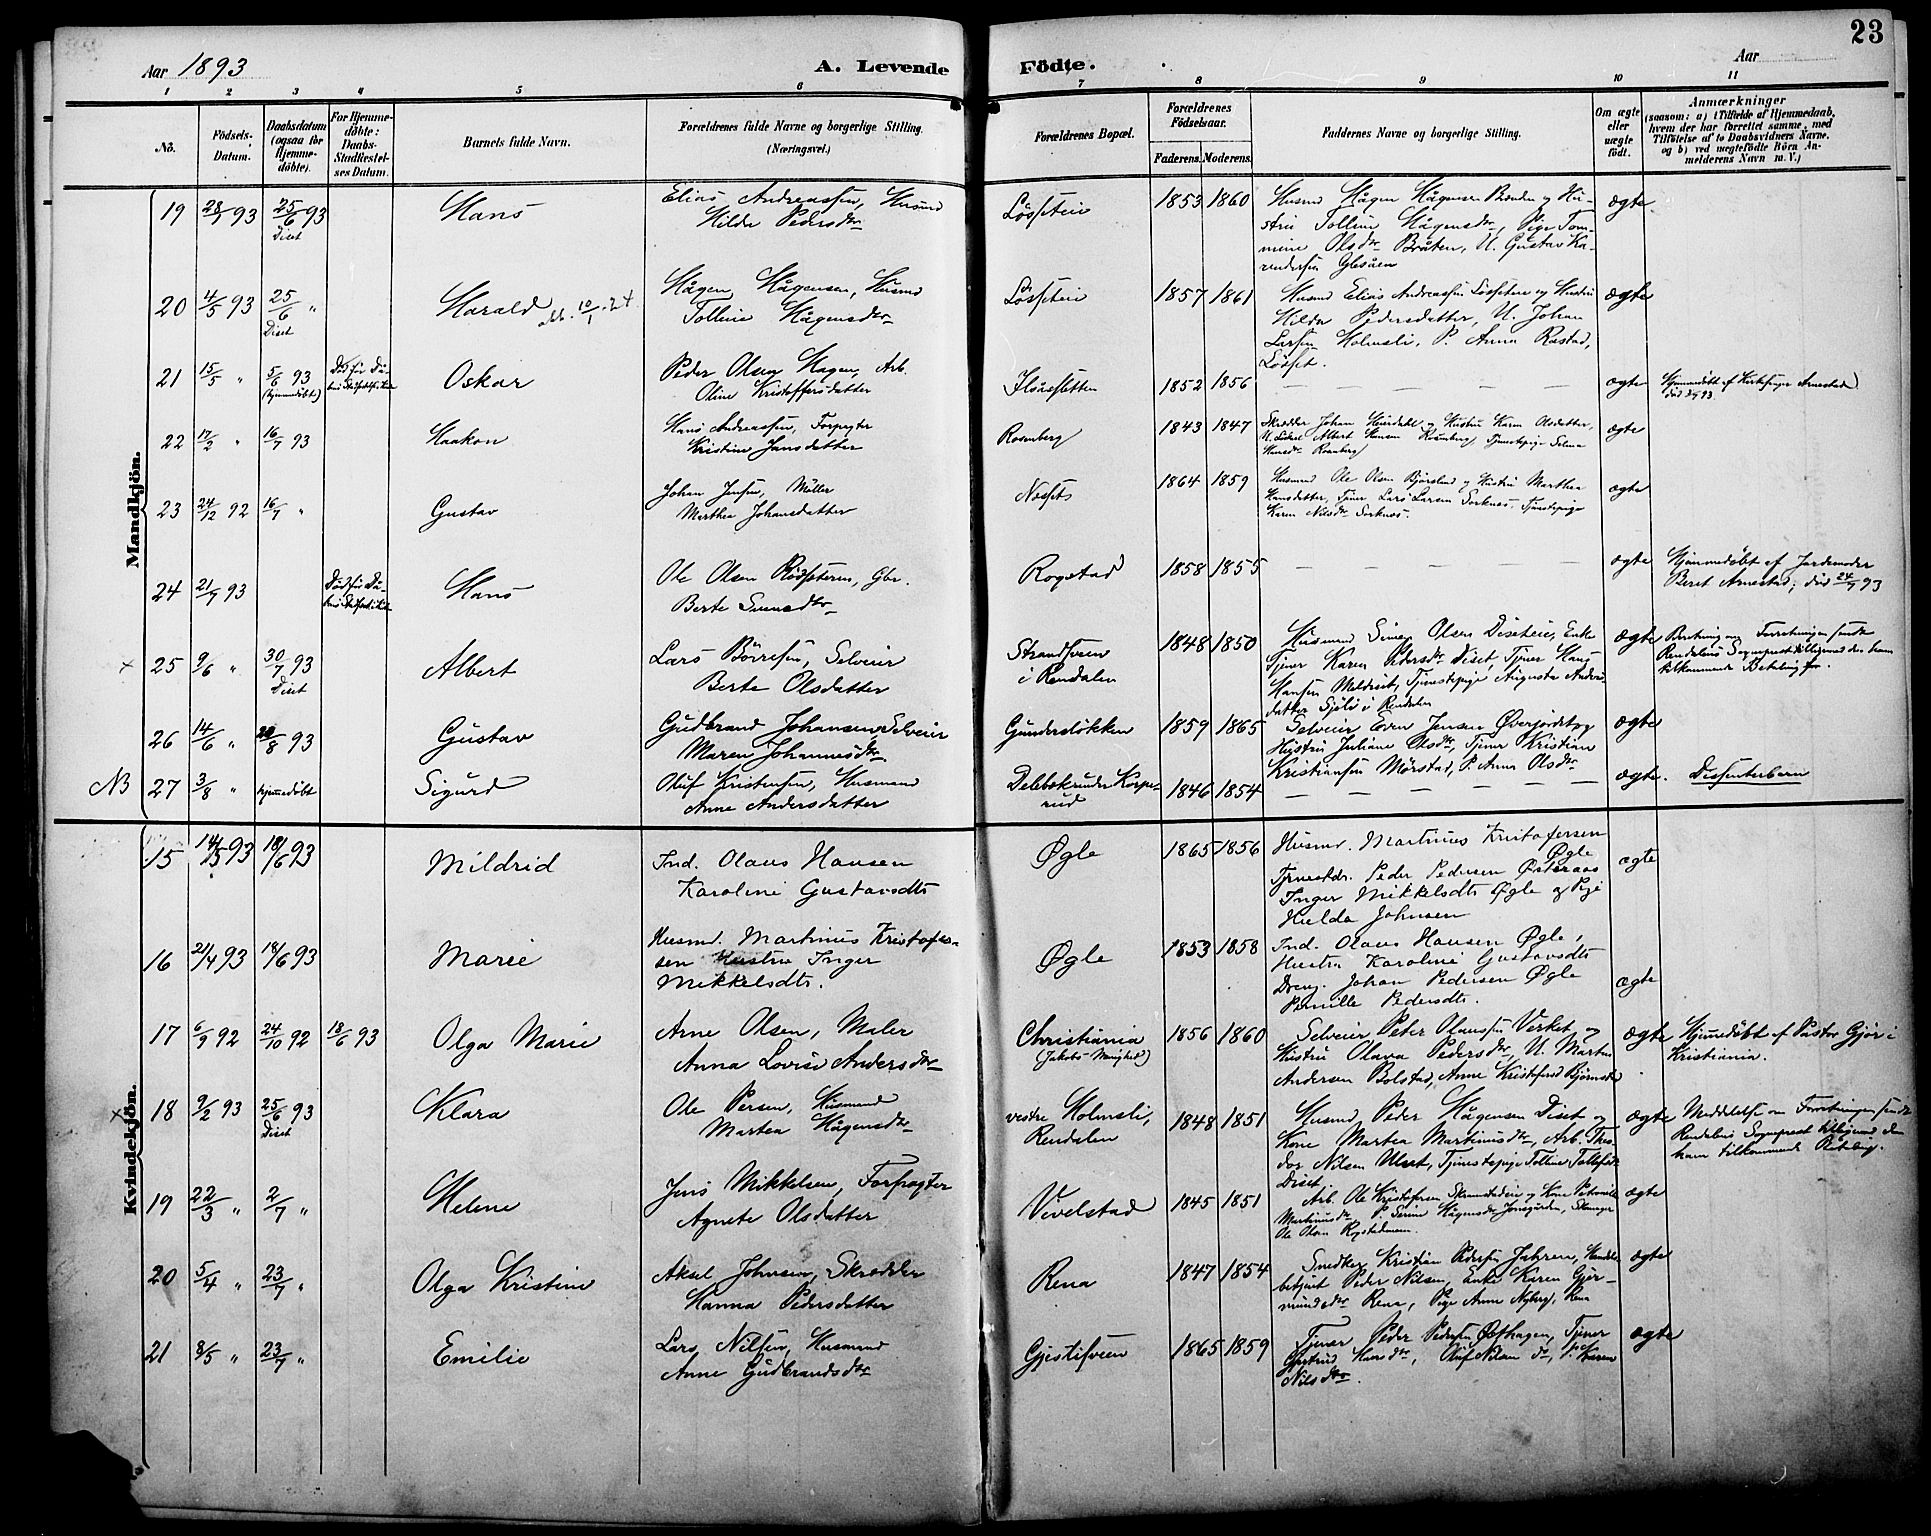 23
Aar 1893
A. Levende
Födte.
Aar
1 2 3 4 5 6 7 8 9 10 11
No.
Födsels-Datum.
Daabsdatum (ogsaa for Hjemme-döbte).
For Hjemme-döbte: Daabs-Stadfæstel-ses Datum.
Barnets fulde Navn.
Forældrenes fulde Navne og borgerlige Stilling.
(Næringsvei.)
Forældrenes Bopæl.
Forældrenes Födselsaar.
Faderens. Moderens.
Faddernes Navne og borgerlige Stilling.
Om ægte eller uægte födt.
Anmærkninger
(saasom: a) i Tilfælde af Hjemmedaab,
hvem der har forrettet samme, med
Tilföielse af to Daabsvidners Navne,
og b) ved uægtefödte Börn An-
melderens Navn m. V.)
Mandkjön.
19 93 25/6 93 Diset Hans
Elias Andreassen, Husmd
Hilda Pedersdtr
Løsseteie 1853 1860
Husmd Hågen Hågensen Brenden og Hu-
stru Tolline Hågensdtr, Pige Tom-
mine Olsdtr Bråten, U. Gustav
ægte
20 4/5 93 25/6 " Diset Harald 10/1 . 24
Hågen Hågensen, Husmd
Tolline Hågensdtr
Løsseteie 1857 1861
Husmd Elias Andreassen Løsseteie og Hustru
Hilda Pedersdatter, U. Johan
Larsen Holmsli, P. Anna Rastad,
Løsset.
ægte
21 15/5 " 5/6 93 (hjemmedøbt) Oskar
Peder Olsen Hagen, Arb.
Oline Kristoffersdatter
1852 1856
— — — — —
ægte Hjemmedøbt af Kirkesanger Arnestad
22 17/2 " 16/7 93 Haakon
Hans Andreassen, Forpagter
Kristine Jansdatter
Rosenberg 1843 1847
Skrædder Johan og Hustru Karen Olsdatter,
Albert Hansen Rosenberg, Tjenestepige Selma
Hansdtr Rosenberg
ægte
23 24/12 92 16/7 " Gustav
Johan Jensen, Møller
Marthea Johansdatter
Næsset 1864 1859
Husmd Ole Olsen og Hustru Marthea
Hansdatter, Tjener Lars Larsen Sorknæs, Tjenestepige
Karen Nilsdtr Sorknæs.
ægte
24 93 Hans
Ole Olsen Rødseteren, Gbr.
Berte Svensdtr
Rogstad 1858 1855
— — — — —
ægte Hjemmedøbt af Jordemoder
Beret Arnestad; død 93
× 25 9/6 " 30/7 93 Diset Albert
Lars Børresen, Selveier
Berte Olsdatter
i Rendalen 1848 1850
Husmand Simen Olsen Diseteie, Enke
Tjener Karen Pedersdtr Diset, Tjener Hans
Hansen Meldiset, Tjenestepige Augusta Anders-
datter Sjøli i Rendalen
ægte Forretningen sendt
Rendalens Sogneprest tilligemed den ham
tilkommende Betaling.
26 14/6 " 20/8 93 Gustav
Gudbrand Johansen, Selveier
Maren Johannesdtr
Gundersløkken 1859 1865
Selveier Even Jensen og
Hustru Juliane Olsdtr, Tjener Kristian
Kristiansen Mørstad, P. Anna Olsdtr
ægte
NB 27 3/8 " hjemmedøbt Sigurd
Oluf Kristensen, Husmand
Anne Andersdatter
1846 1854
— — — — —
ægte. Dissenterbarn
Kvindekjön.
15 14/5 93 18/6 93 Mildrid
Ind. Olaus Hansen
Karoline Gustavsdtr
Øgle 1865 1856
Husmd. Martinus Kristofersen
Øgle
Peder Pedersen Østeraas
Inger Mikkelsdtr Øgle og Pige
Hulda Johnsen
ægte
16 21/4 93 18/6 93 Marie
Husmd. Martinus Kristofer-
sen Hustru Inger
Mikkelsdtr.
Øgle 1853 1858
Ind. Olaus Hansen Øgle,
Hustru Karoline Gustavsdtr
Dreng. Johan Pedersen Øgle
Pernille Pedersdtr.
ægte
17 6/9 92 24/10 92 18/6 93 Olga Marie
Arne Olsen, Maler
Anna Lovise Andersdtr
Christiania
(Jakobs Menighed) 1856 1860
Selveier Peter Olaussen Verket, og
Hustru Olava Pedersdtr, U. Martin
Andersen Bolstad, Anne Kristofersd
ægte Hjemmedøbt af Pastor Gjør i
Kristiania.
× 18 9/2 93 25/6 93 Diset Klara
Ole Persen, Husmand
Martea Hågensdtr
vestre Holmsli,
Rendalen 1848 1851
Husmd Peder Hågensen Diset og
Kone Martea Martinusdtr, Arb. Theo-
dor Nilsen Ulset, Tjenestepige Tolline Tollefsdtr
Diset
ægte Meddelelse om Forretningen sendt
Rendalens Sogneprest tilligemed den
ham tilkommende Betaling.
19 22/3 " 2/7 " Helene
Jens Mikkelsen, Forpagter
Agnete Olsdatter
Vevelstad 1845 1851
Arb. Ole Kristofersen og Kone Petronille
Martinusdtr, P. Serine Hågensdtr
Ole Olsen
ægte
20 5/4 " 23/7 " Olga Kristine
Aksel Johnsen, Skrædder
Hanna Pedersdatter
Rena 1847 1854
Snedker Kristian Pedersen Jahren, Handels-
betjent Peder Nilsen, Enke Karen Gjer-
mundsdtr Rena, Pige Anne Nyberg, Rena
ægte
21 8/5 " 23/7 " Emilie
Lars Nilsen, Husmand
Anne Gudbrandsdtr
Gjestifveen 1865 1859
Tjener Peder Pedersen Østhagen, Tjener
Gjertrud Hansdtr, Oluf Nilsen do, P. Karen
Nilsdtr.
ægte